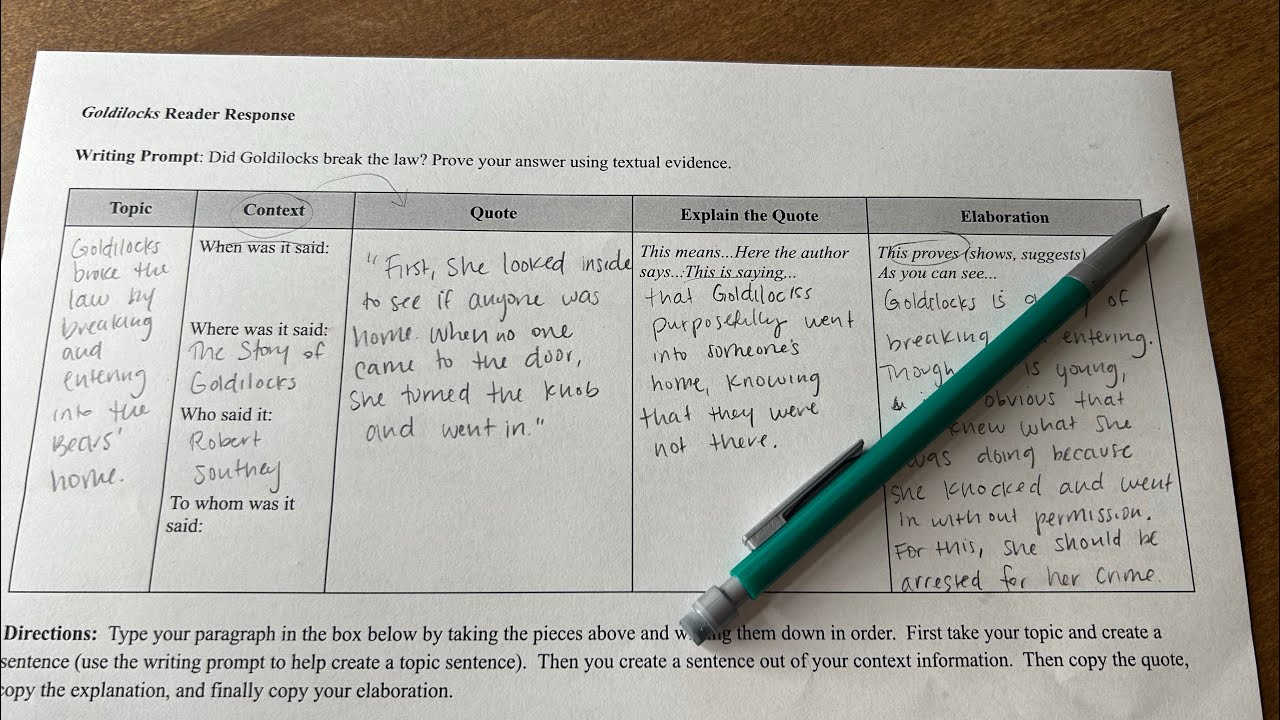 Goldilocks Reader Response
Writing Prompt: Did Goldilocks break the law? Prove your answer using textual evidence.
Topic
Goldilocks
broke the
law by
breaking
and
entering
into the
Bears'
home.
Context
When was it said:
Where was it said:
The Story of
Goldilocks
Who said it:
Robert
Southey
To whom was it
said:
Quote
"First, she looked inside
to see if anyone was
home. When no one
came to the door,
she turned the knob
and went in."
Explain the Quote
This means...Here the author
says...This is saying...
that Goldilocks
purposefully went
into someone's
home, knowing
that they were
not there.
Elaboration
This proves (shows, suggests)
As you can see...
Goldilocks is of
breaking entering.
Though is young,
obvious that
knew what she
was doing because
she knocked and went
in without permission.
For this, she should be
arrested for her crime.
Directions: Type your paragraph in the box below by taking the pieces above and them down in order. First take your topic and create a
sentence (use the writing prompt to help create a topic sentence). Then you create a sentence out of your context information. Then copy the quote,
copy the explanation, and finally copy your elaboration.